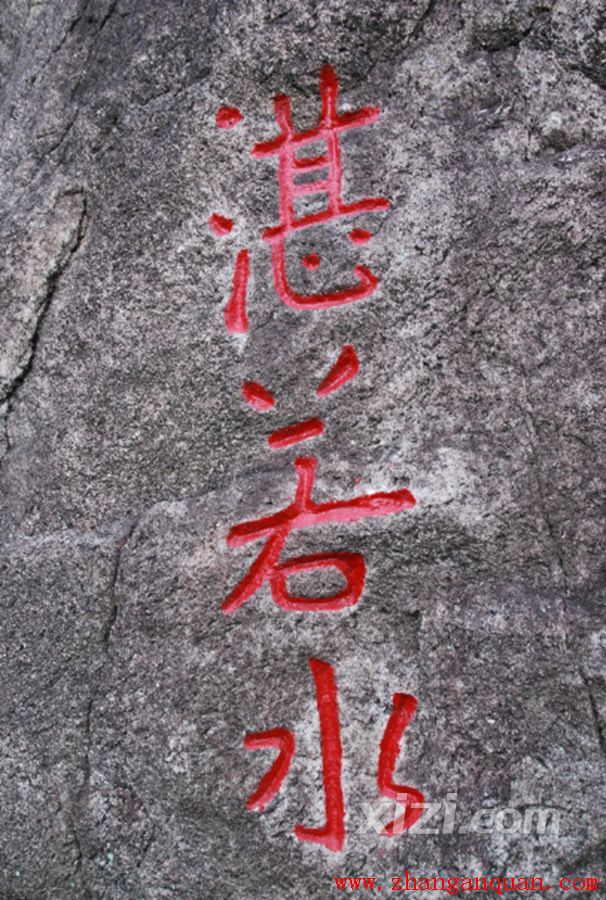 湛若水
xizi.com
www.zhanganquan.com